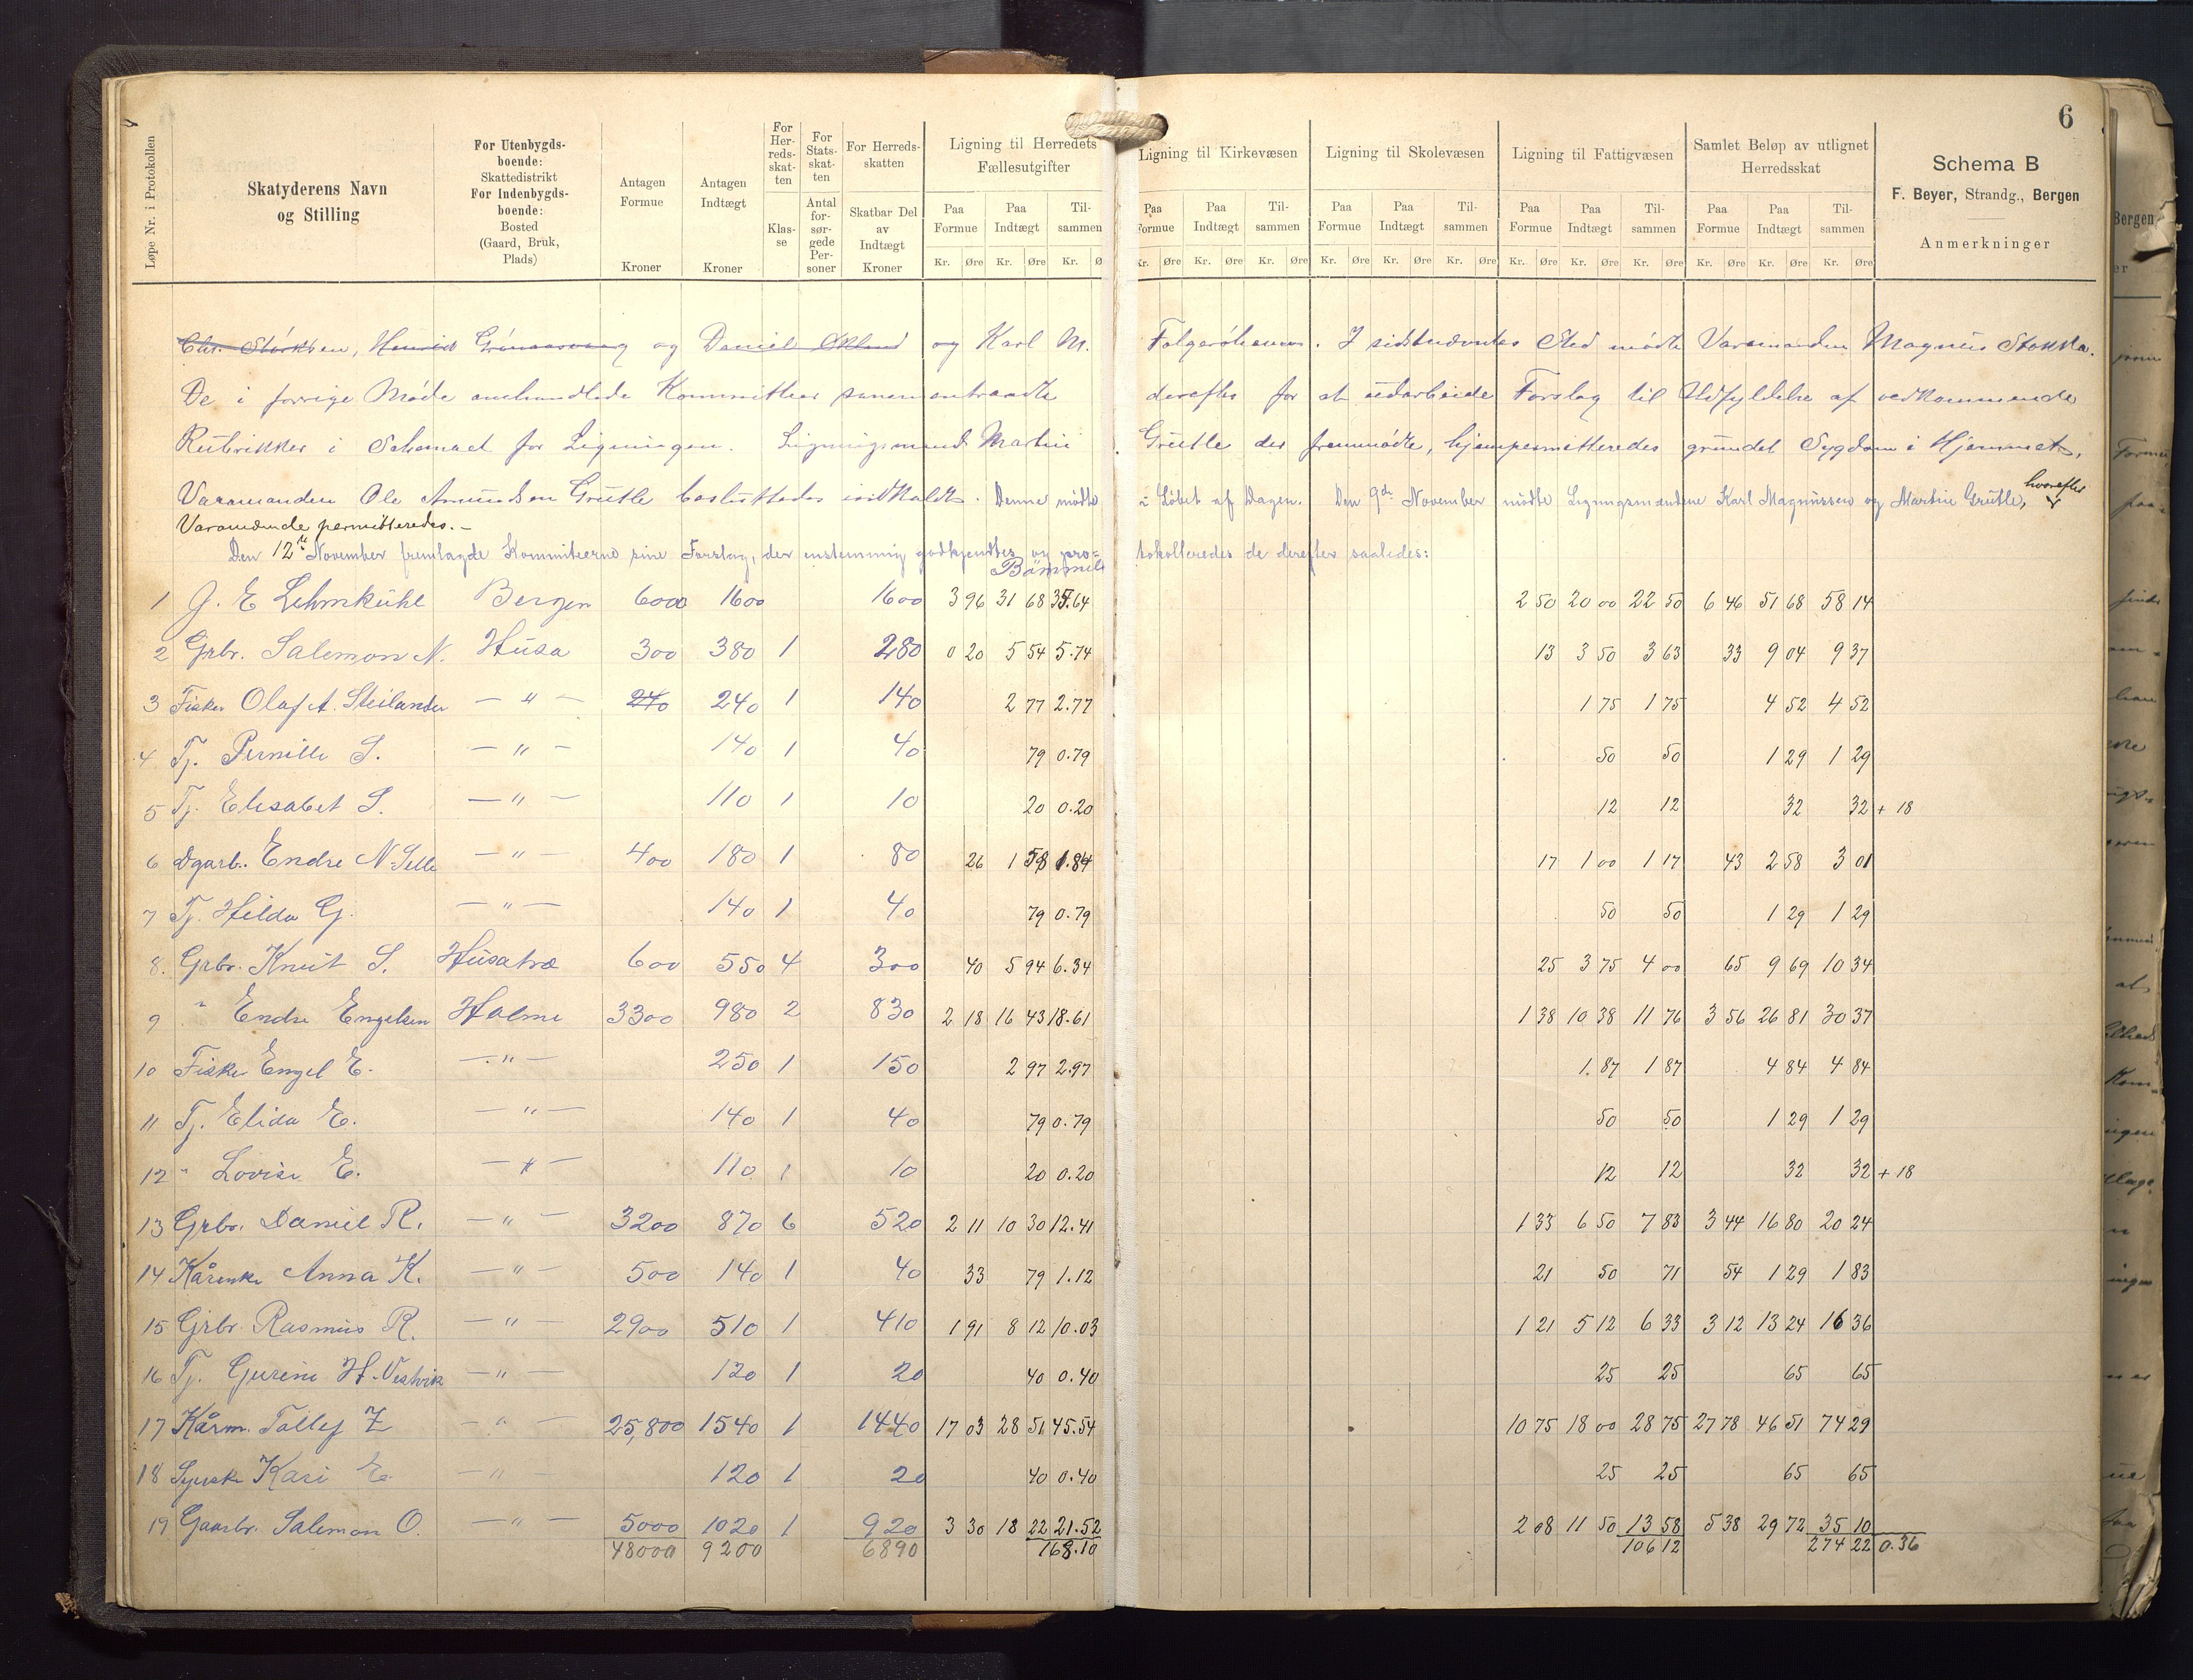 6
Løpe Nr. i Protokollen
Skatyderens Navn og Stilling
For Utenbygdsboende: Skattedistrikt For Indenbygdsboende: Bosted (Gaard, Bruk, Plads)
Antagen Formue Kroner
Antagen Indtægt Kroner
For Herredsskatten Klasse
For Statsskatten Antal forsørgede Personer
For Herredsskatten Skatbar Del av Indtægt Kroner
Ligning til Herredets Fællesutgifter
Ligning til Kirkevæsen
Ligning til Skolevæsen
Ligning til Fattigvæsen
Samlet Beløp av utlignet Herredsskat
Paa Formue Paa Indtægt Tilsammen Paa Formue Paa Indtægt Tilsammen Paa Formue Paa Indtægt Tilsammen Paa Formue Paa Indtægt Tilsammen Paa Formue Paa Indtægt Tilsammen
Kr. Øre Kr. Øre Kr. Ø Kr. Øre Kr. Øre Kr. Øre Kr. Øre Kr. Øre Kr. Øre Kr. Øre Kr. Øre Kr. Øre Kr. Øre Kr. Øre Kr. Øre
Schema B
F. Beyer, Strandg., Bergen
Anmerkninger
Chr. Størksen, og Daniel Økland og Karl M. I sidstnævntes Sted mødte Varamanden Magnus Stokka.
De i forrige Møde omhandlede Kommitteer sammentraadte derefter for at udarbeide Forslag til Udfyldelse af vedkommende
Rubrikker i Schemaet for Ligningen. Ligningsmand Martin Grutle der fremmødte, hjempermitteredes grundet Sygdom i Hjemmet,
Varamanden Ole Amundsen Grutle besluttedes indkaldt. Denne mødte i Løbet af Dagen. Den 9de November mødte Ligningsmændene Karl Magnussen og Martin Grutle, hvorefter
Varamændene permitteredes. –
Den 12te November fremlagde Kommiteerne sine Forslag, der enstemmig godkjendtes og protokolleredes de derefter saaledes:
Bömmel
1 J. E Lehmkuhl Bergen 6000 1600 1600 3 96 31 68 35.64 2 50 20 00 22 50 6 46 51 68 58 14
2 Grbr. Salemon N. Husa 300 380 1 280 0 20 5 54 5.74 13 3 50 3 63 33 9 04 9 37
3 Fisker Olaf A. Steilander — " — 240 240 1 140 2 77 2.77 1 75 1 75 4 52 4 52
4 Tj. Pernille S. — " — 140 1 40 79 0.79 50 50 1 29 1 29
5 Tj. Elisabet S. — " — 110 1 10 20 0.20 12 12 32 32 + 18
6 Dgarb. Endre N. Selle — " — 400 180 1 80 26 1 58 1.84 17 1 00 1 17 43 2 58 3 01
7 Tj. Hilda G. — " — 140 1 40 79 0.79 50 50 1 29 1 29
8. Grbr. Knut S. Husatræ 600 550 4 300 40 5 94 6.34 25 3 75 4 00 65 9 69 10 34
9 " Endre Engelsen Holme 3300 980 2 830 2 18 16 43 18.61 1 38 10 38 11 76 3 56 26 81 30 37
10 Fisker Engel E. — " — 250 1 150 2 97 2.97 1.87 1 87 4 84 4 84
11 Tj. Elida E. — " — 140 1 40 79 0.79 50 50 1 29 1 29
12 " Lovise E. — " — 110 1 10 20 0.20 12 12 32 32 + 18
13 Grbr. Daniel R. — " — 3200 870 6 520 2 11 10 30 12.41 1 33 6 50 7 83 3 44 16 80 20 24
14 Kårenke Anna K. — " — 500 140 1 40 33 79 1.12 21 50 71 54 1 29 1 83
15 Grbr. Rasmus R. — " — 2900 510 1 410 1 91 8 12 10.03 1 21 5 12 6 33 3 12 13 24 16 36
16 Tj. Gurine H. Vestvik — " — 120 1 20 40 0.40 25 25 65 65
17 Kårm. Tollef Z — " — 25,800 1540 1 1440 17 03 28 51 45.54 10 75 18 00 28 75 27 78 46 51 74 29
18 Syerske Kari E. — " — 120 1 20 40 0.40 25 25 65 65
19 Gaarbr. Salemon O. — " — 5000 1020 1 920 3 30 18 22 21.52 2 08 11 50 13 58 5 38 29 72 35 10
48000 9200 6890 168.10 106 12 274 22 0.36